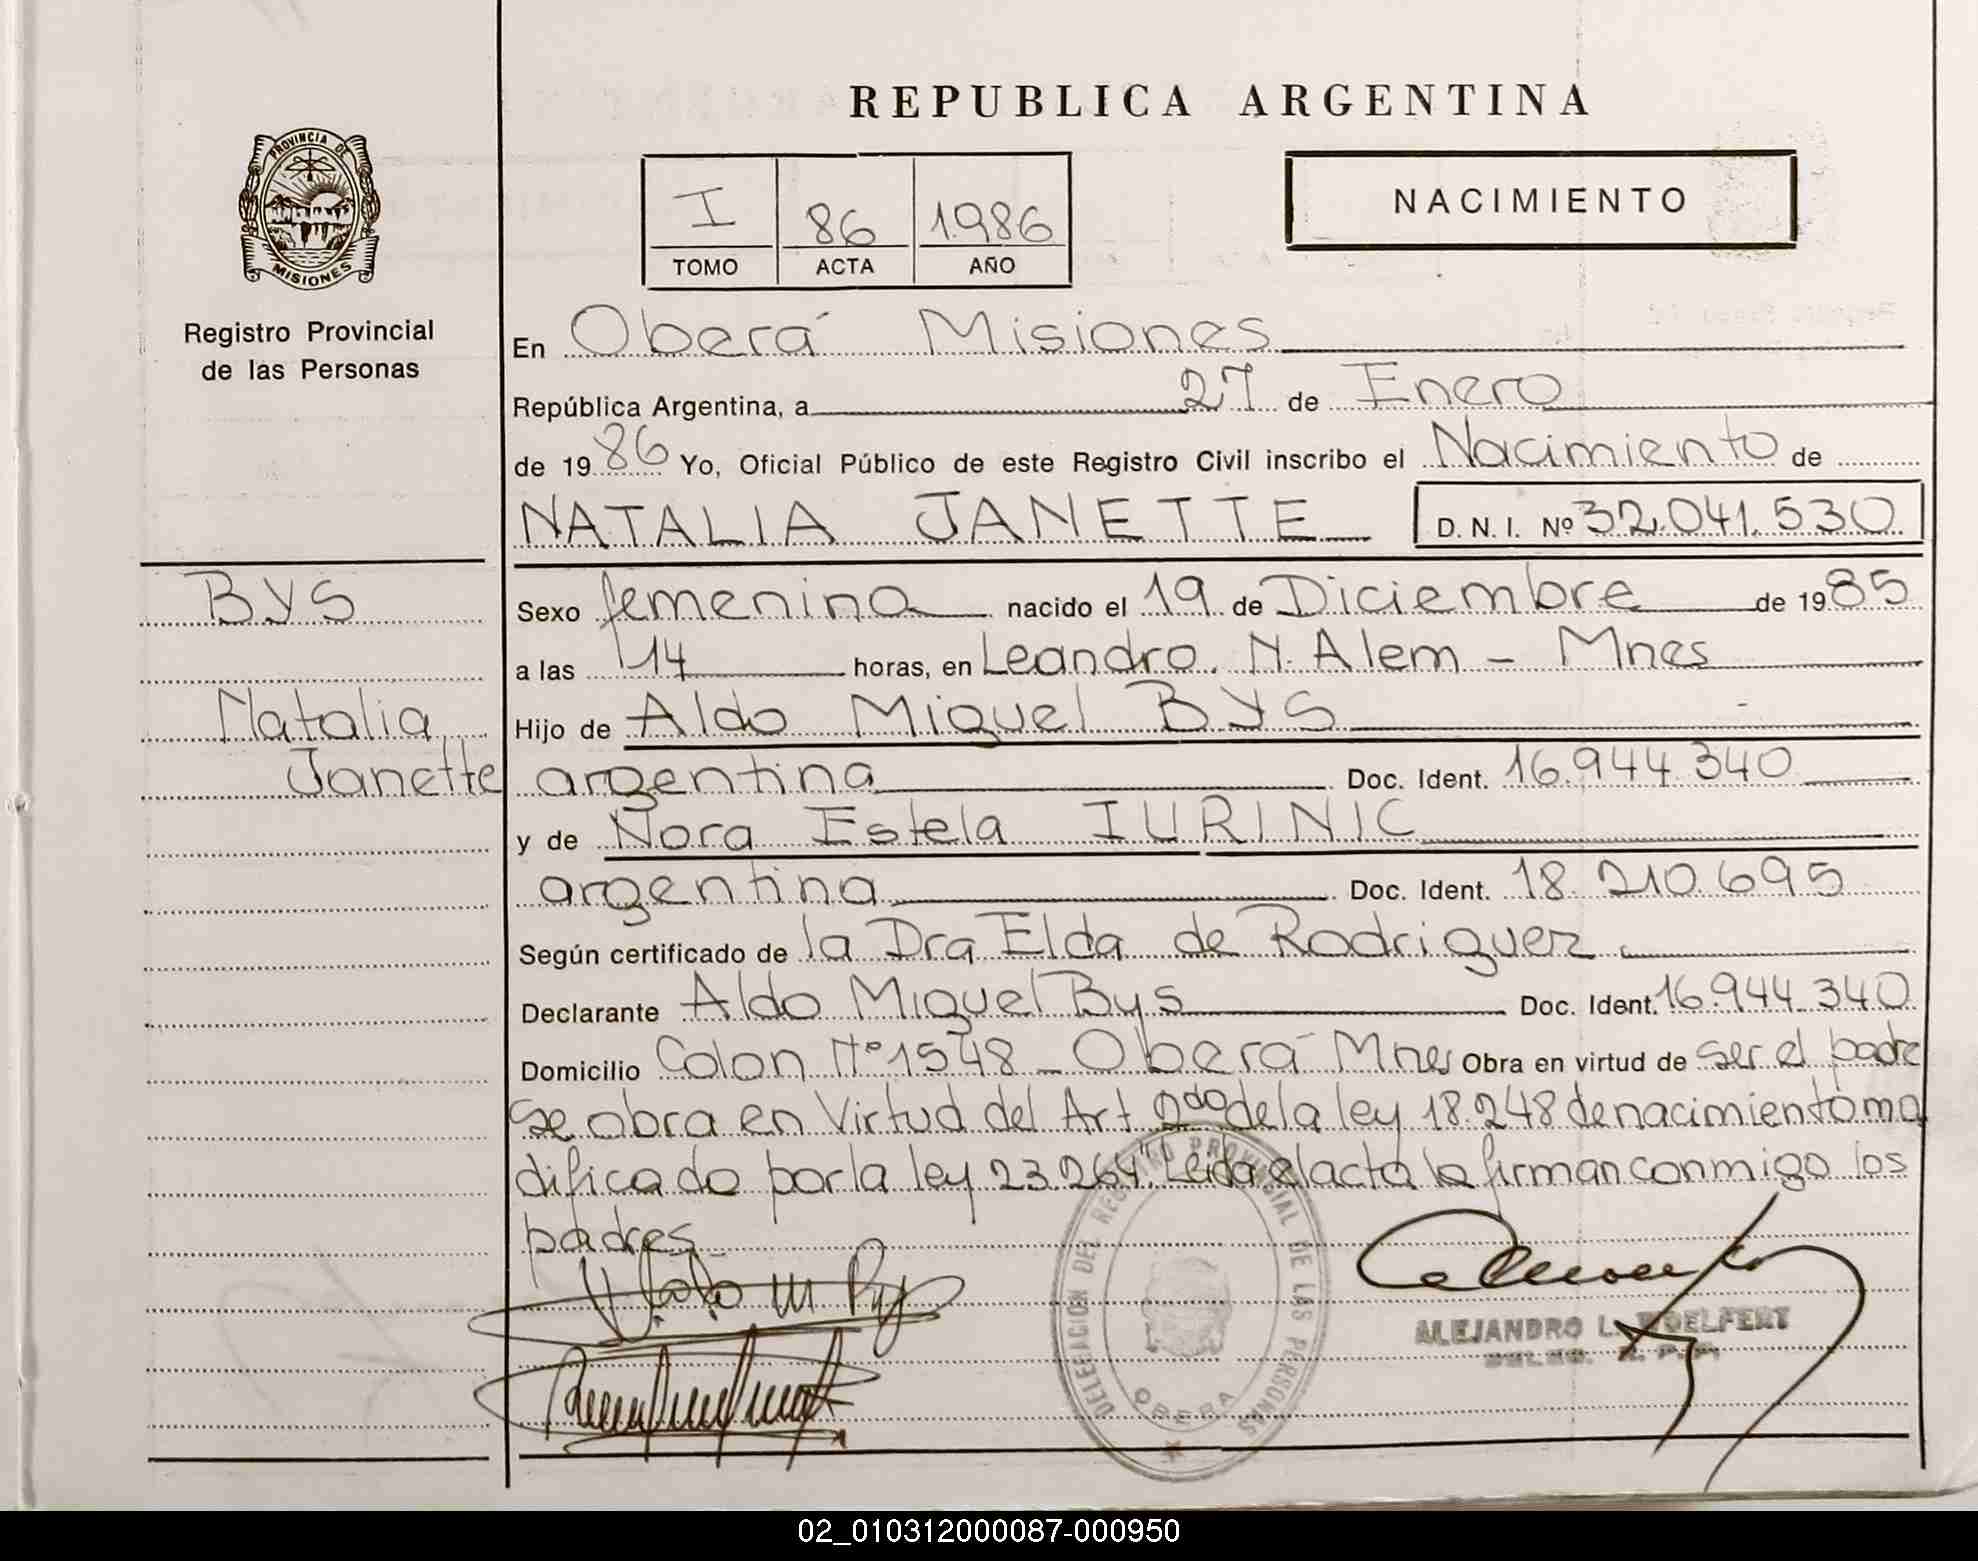 REPUBLICA ARGENTINA
PROVINCIA DE
MISIONES
Registro Provincial
de las Personas
I 86 1.986
TOMO ACTA AÑO
NACIMIENTO
En Oberá Misiones
República Argentina, a 27 de Enero
de 1986 Yo, Oficial Público de este Registro Civil inscribo el Nacimiento de
NATALIA JANETTE D. N. I. Nº 32.041.530
BYS
Natalia
Janette
Sexo femenina nacido el 19 de Diciembre de 1985
a las 14 horas, en Leandro. N. Alem - Mnes
Hijo de Aldo Miguel BYS
argentina Doc. Ident. 16.944.340
y de Nora Estela IURINIC
argentina Doc. Ident. 18.210.695
Según certificado de la Dra Elda de Rodriguez
Declarante Aldo Miguel Bys Doc. Ident. 16.944.340
Domicilio Colon Nº 1548 - Oberá Mnes Obra en virtud de ser el padre
se obra en Virtud del Art 2do de la ley 18.248 de nacimiento mo
dificado por la ley 23.264". Leida el acta la firman conmigo los
padres
DELEGACION DEL REGISTRO PROVINCIAL DE LAS PERSONAS
OBERA
ALEJANDRO L. WOELFERT
02_010312000087-000950